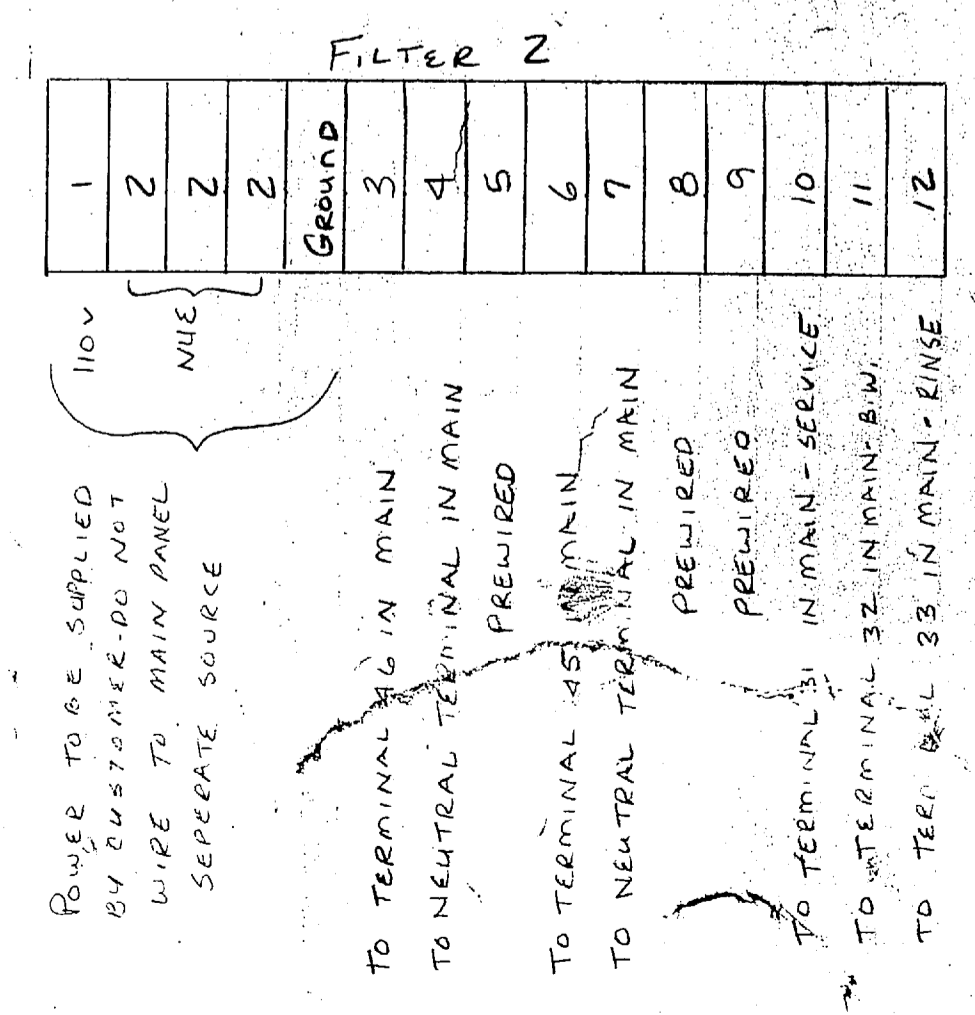 FILTER 2
1
2
2
2
GROUND
3
4
5
6
7
8
9
10
11
12
110V
NUE
POWER TO BE SUPPLIED
BY CUSTOMER-DO NOT
WIRE TO MAIN PANEL
SEPERATE SOURCE
TO TERMINAL 46 IN MAIN
TO NEUTRAL TERMINAL IN MAIN
PREWIRED
TO TERMINAL 45 MAIN
TO NEUTRAL TERMINAL IN MAIN
PREWIRED
PREWIRED
TO TERMINAL 31 IN MAIN - SERVICE
TO TERMINAL 32 IN MAIN - B.W.
TO 33 IN MAIN - RINSE